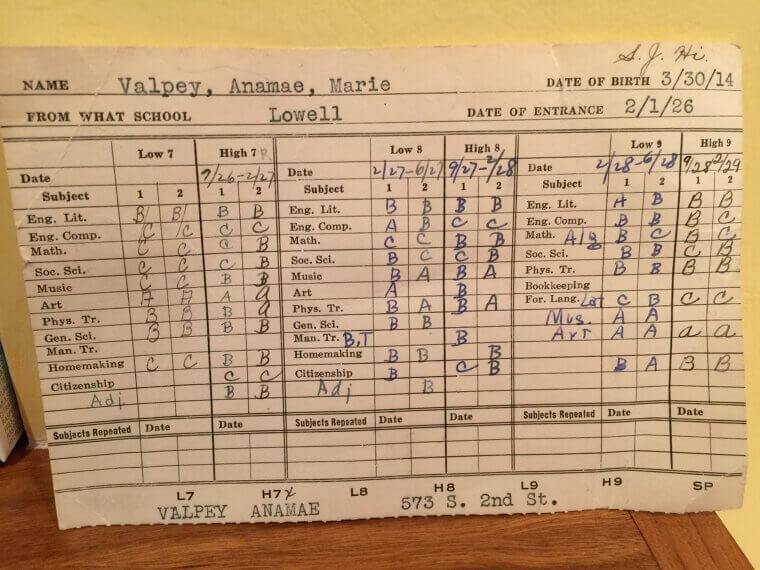 S. J. Hi.
NAME Valpey, Anamae, Marie DATE OF BIRTH 3/30/14
FROM WHAT SCHOOL Lowell DATE OF ENTRANCE 2/1/26
Low 7 High 7 Low 8 High 8 Low 9 High 9
Date 9/26-2/27 Date 2/27-6/27 9/27-2/28 Date 2/28-6/28 9/28 2/29
Subject 1 2 1 2 Subject 1 2 1 2 Subject 1 2 1 2
Eng. Lit. B B B B Eng. Lit. B B B B Eng. Lit. A B B B
Eng. Comp. C C C C Eng. Comp. A B C C Eng. Comp. B B B C
Math. C C C B Math. C C B B Math. Alg B C C C
Soc. Sci. C C C B Soc. Sci. B C C B Soc. Sci. B B C B
Music C C B B Music B A B A Phys. Tr. B B B B
Art A A A a Art A B Bookkeeping
Phys. Tr. B B B a Phys. Tr. B A B A For. Lang. Lat C B C C
Gen. Sci. B B B B Gen. Sci. B B Mus. A A
Man. Tr. Man. Tr. B,T B Art A A a a
Homemaking C C B B Homemaking B B B
Citizenship C C Citizenship B C B B A B B
Adj. B B Adj B
Subjects Repeated Date Date Subjects Repeated Date Date Subjects Repeated Date Date
L7 H7 L8 H8 L9 H9 SP
VALPEY ANAMAE 573 S. 2nd St.